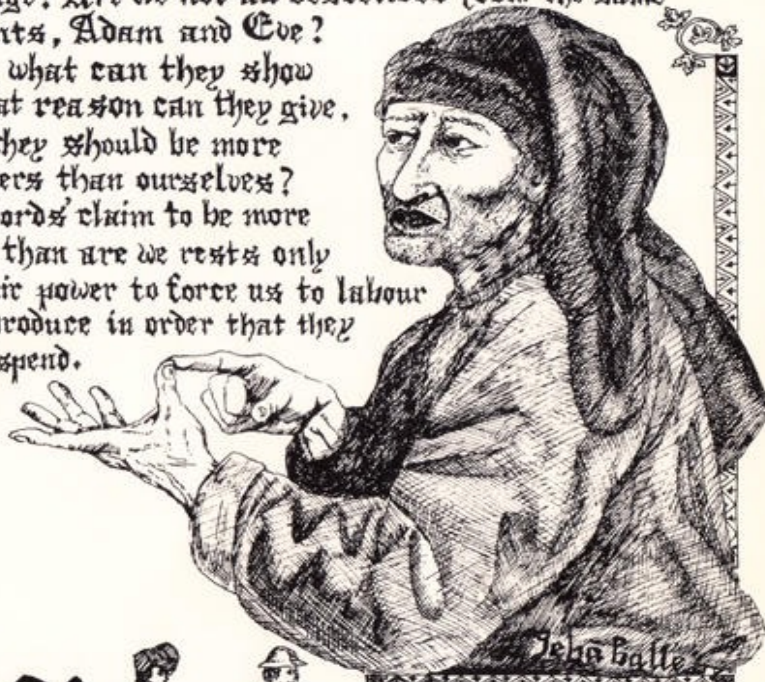 Are we not all descended from the same
nts, Adam and Eve?
what can they show
at reason can they give,
they should be more
ers than ourselves?
ords' claim to be more
than are we rests only
ir power to force us to labour
roduce in order that they
spend.
Jehã Balle